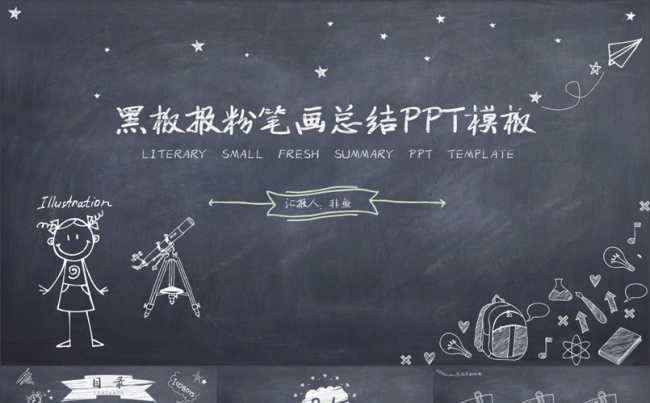 黑板报粉笔画总结PPT模板
LITERARY SMALL FRESH SUMMARY PPT TEMPLATE
Illustration
汇报人：非鱼
目录
CONTENTS